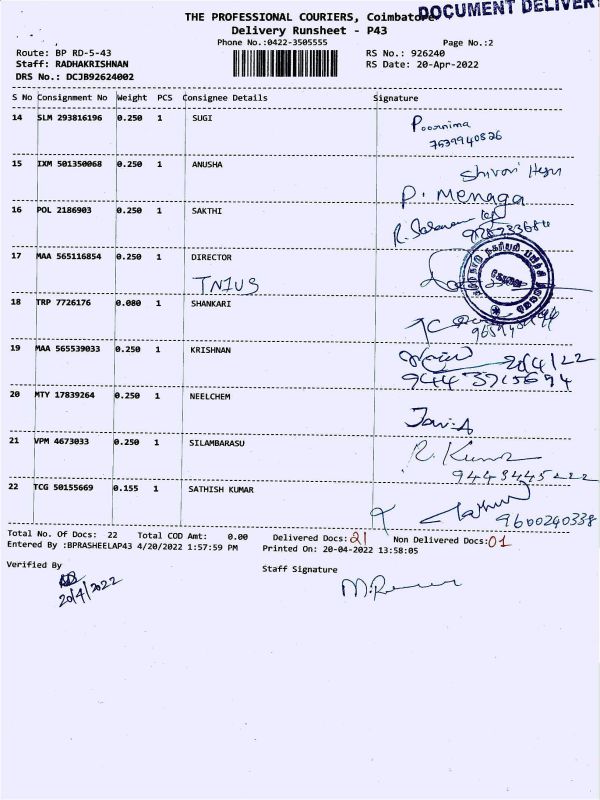 THE PROFESSIONAL COURIERS, Coimbatore
DOCUMENT DELIVER
Delivery Runsheet - P43
Phone No.:0422-3505555
Page No.:2
Route: BP RD-5-43
RS No.: 926240
Staff: RADHAKRISHNAN
RS Date: 20-Apr-2022
DRS No.: DCJB92624002
S No Consignment No Weight PCS Consignee Details Signature
14 SLM 293816196 0.250 1 SUGI
Poornima
7539940826
15 IXM 501350068 0.250 1 ANUSHA
Shivani
P. Menaga
16 POL 2186903 0.250 1 SAKTHI
17 MAA 565116854 0.250 1 DIRECTOR
TNIUS
18 TRP 7726176 0.080 1 SHANKARI
19 MAA 565539033 0.250 1 KRISHNAN
20/4/22
9443715694
20 MTY 17839264 0.250 1 NEELCHEM
21 VPM 4673033 0.250 1 SILAMBARASU
R. Kumar
9443445222
22 TCG 50155669 0.155 1 SATHISH KUMAR
9600240338
Total No. Of Docs: 22 Total COD Amt: 0.00 Delivered Docs:21 Non Delivered Docs:01
Entered By :BPRASHEELAP43 4/20/2022 1:57:59 PM Printed On: 20-04-2022 13:58:05
Verified By
Staff Signature
20/4/2022